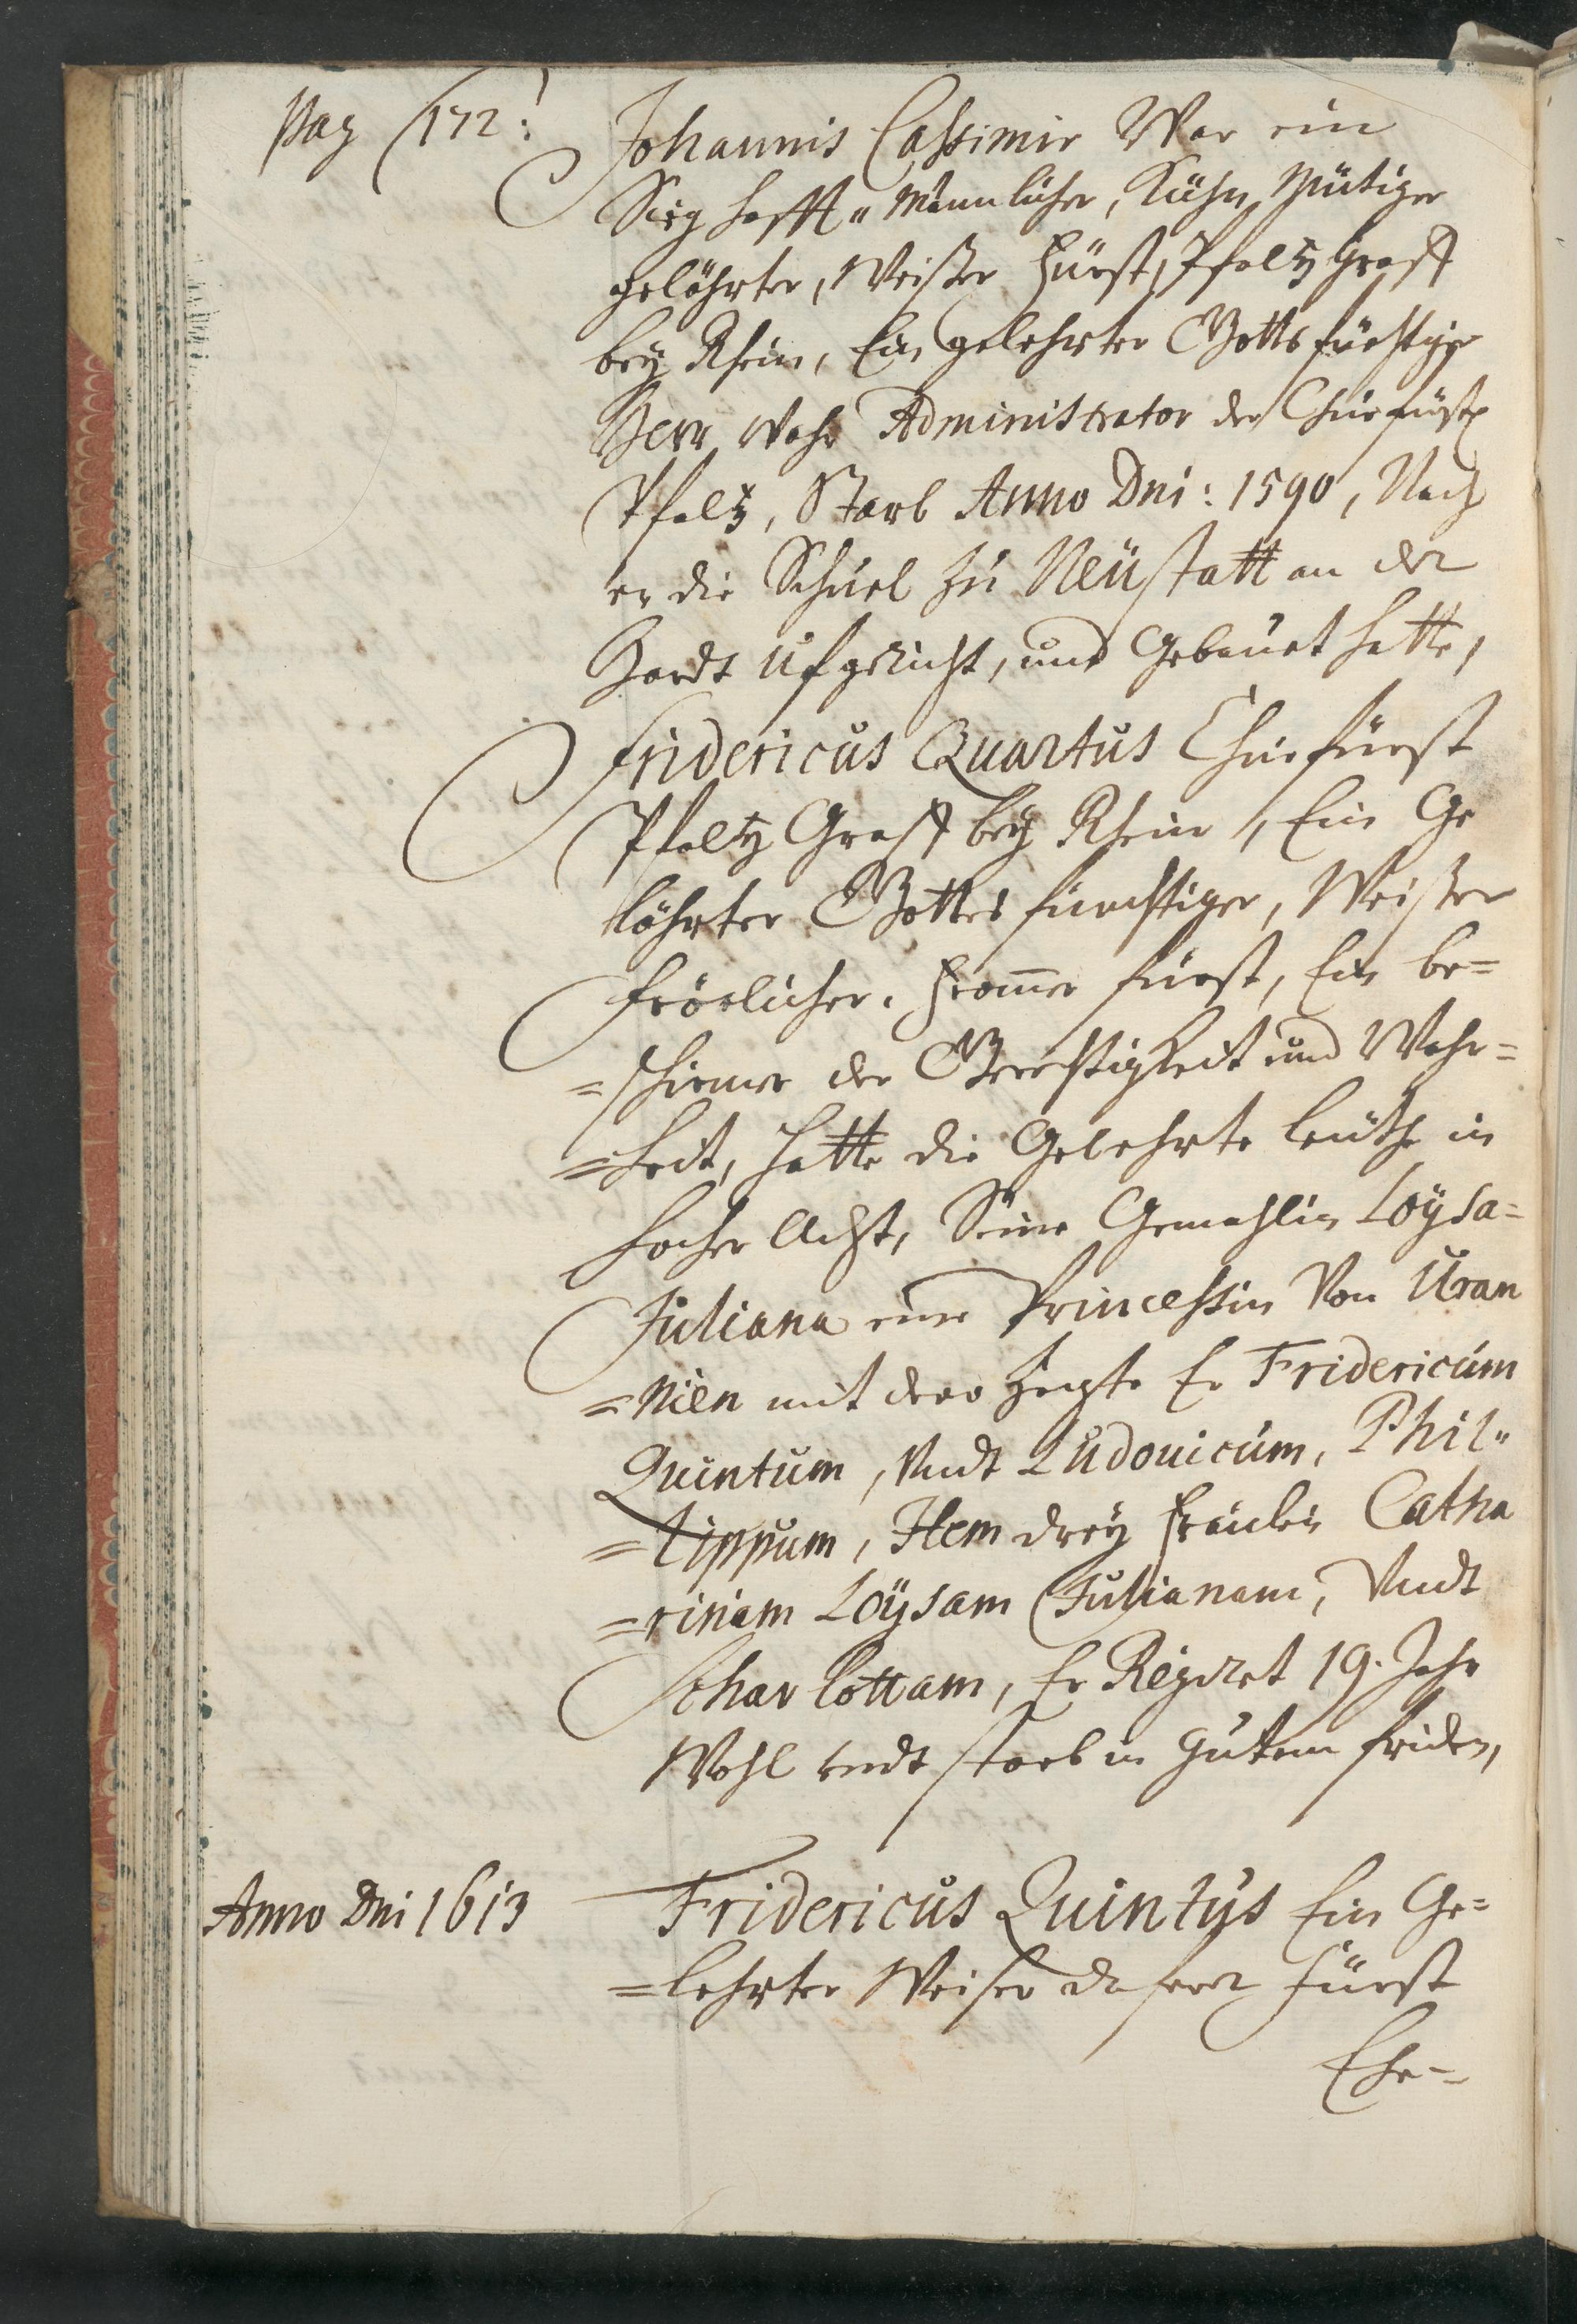 Pag 172:
Johannis Casimir War ein
Sieghafft„ Männlicher, Kühn Mütiger
gelöhrter, Weißer Fürst, Pfaltz Graff
bey Rhein, Ein gelehrter Gottsfürchtiger
Herr wahr Administrator der Churfürstl
Pfaltz, Starb Anno Dni: 1590, Nach
er die Schuel zu Neüstatt an der
Hardt ufgericht, und Gebauet hatte,
Fridericus Quartus Churfürst
Pfaltz Graff bey Rhein, Ein Ge
löhrter Gottes fürchtiger, Weißer
fröelicher, Frommer fürst, Ein be=
=schirmer der Gerechtigkeit und Wahr=
=heit, hatte die Gelehrte leüthe in
hocher Acht, Seine Gemahlin Loÿsa=
Juliana eine Princessin Von Uran
=nien mit dero Zeügte Er Fridericum
Quintum, Undt Ludouicum, Phil„
=lippum, Item dreÿ fräulein Catha
=rinam Loÿsam Julianam, Undt
Scharlottam, Er Regiret 19. Jahr
Wohl undt starb in Gutem friden,
Anno Dni 1613
Fridericus Quintus Ein Ge=
=lehrter Weiser Fürst
Ehr=